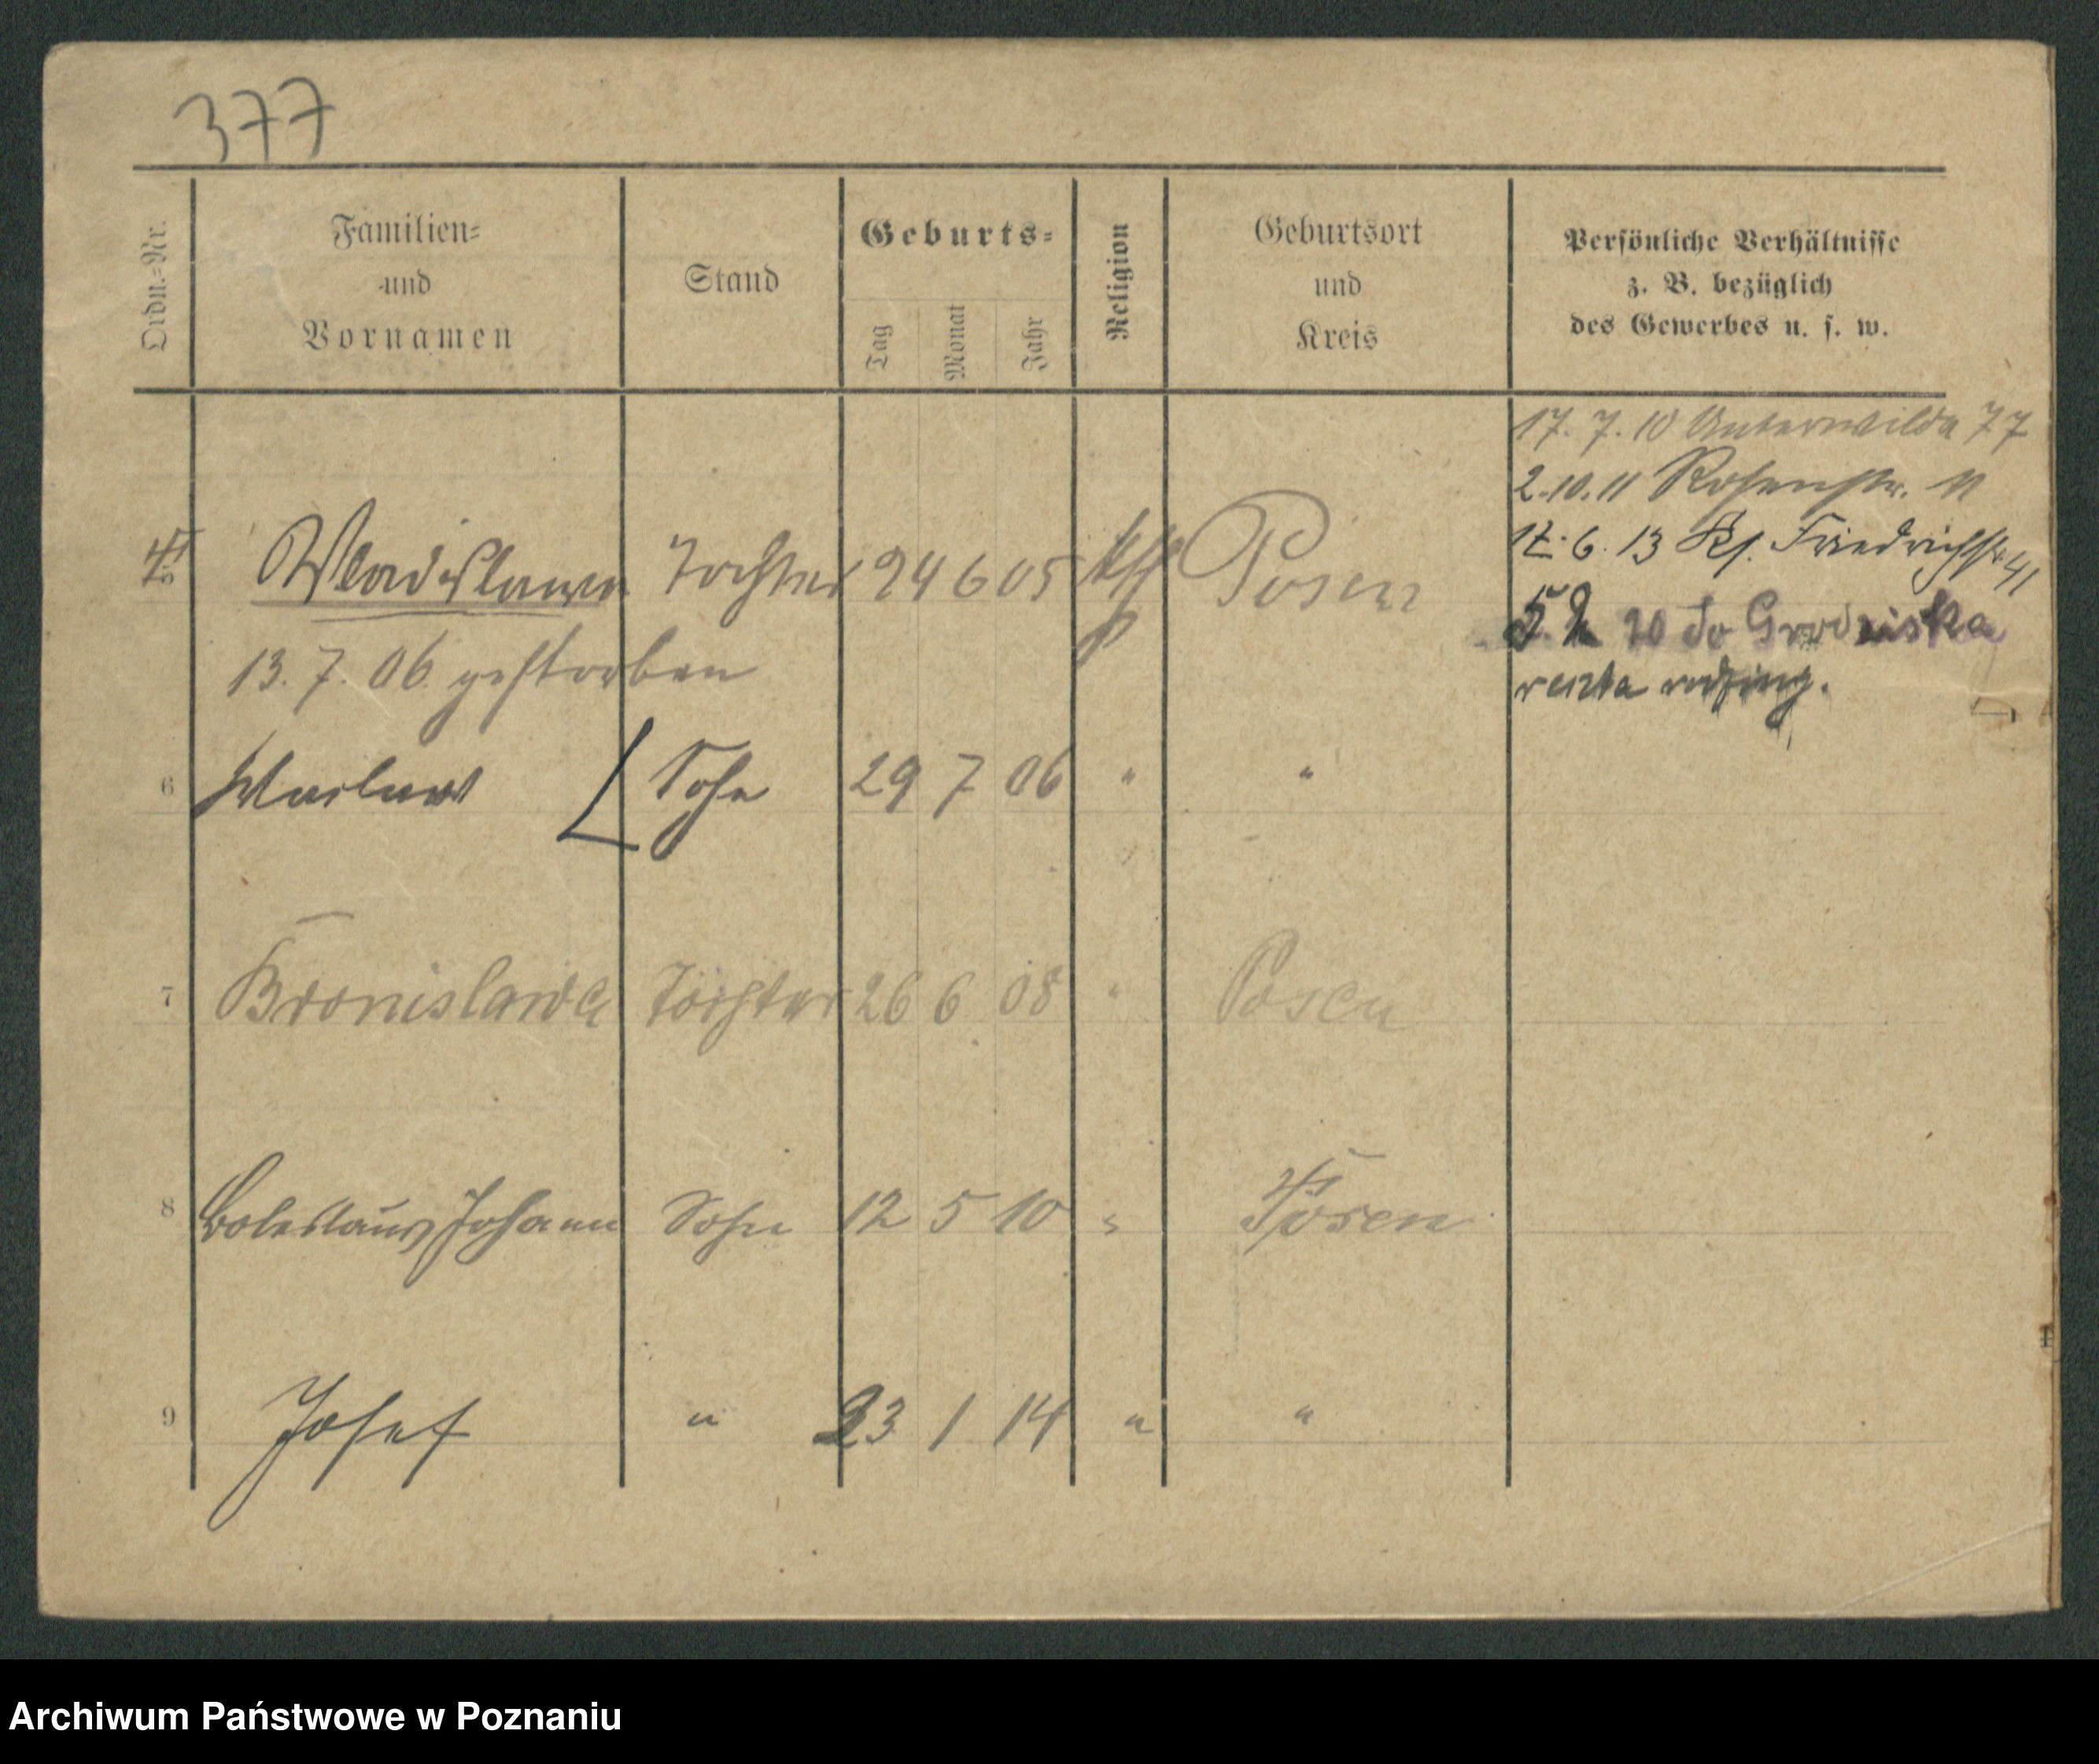 377
Ordn.-Nr.
Familien-
und
Vornamen
Stand
Geburts-
Tag
Monat
Jahr
Religion
Geburtsort
und
Kreis
Persönliche Verhältnisse
z. B. bezüglich
des Gewerbes u. s. w.
17. 7. 10 Unterwilda 77
2.10.11 Rosenstr. 11
6. 13 Friedrichstr 41
20 do Grodziska
reszta
Wladislawa Tochter 24 6 05 kth Posen
13. 7. 06. gestorben
6 Waclaw Sohn 29 7 06 " "
7 Bronislawa Tochter 26 6 08 " Posen
8 Boleslaus Johann Sohn 12 5 10 " Posen
9 Josef " 23 1 14 " "
Archiwum Państwowe w Poznaniu